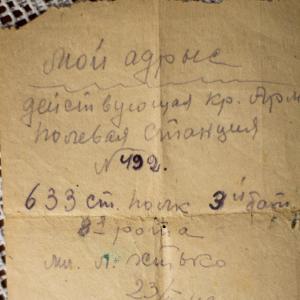 Мой адрыс
действующая кр. Арм
Полевая станция
N 492.
633 ст. полк 3й бат.
8я рота
мл. л. Жтько
23